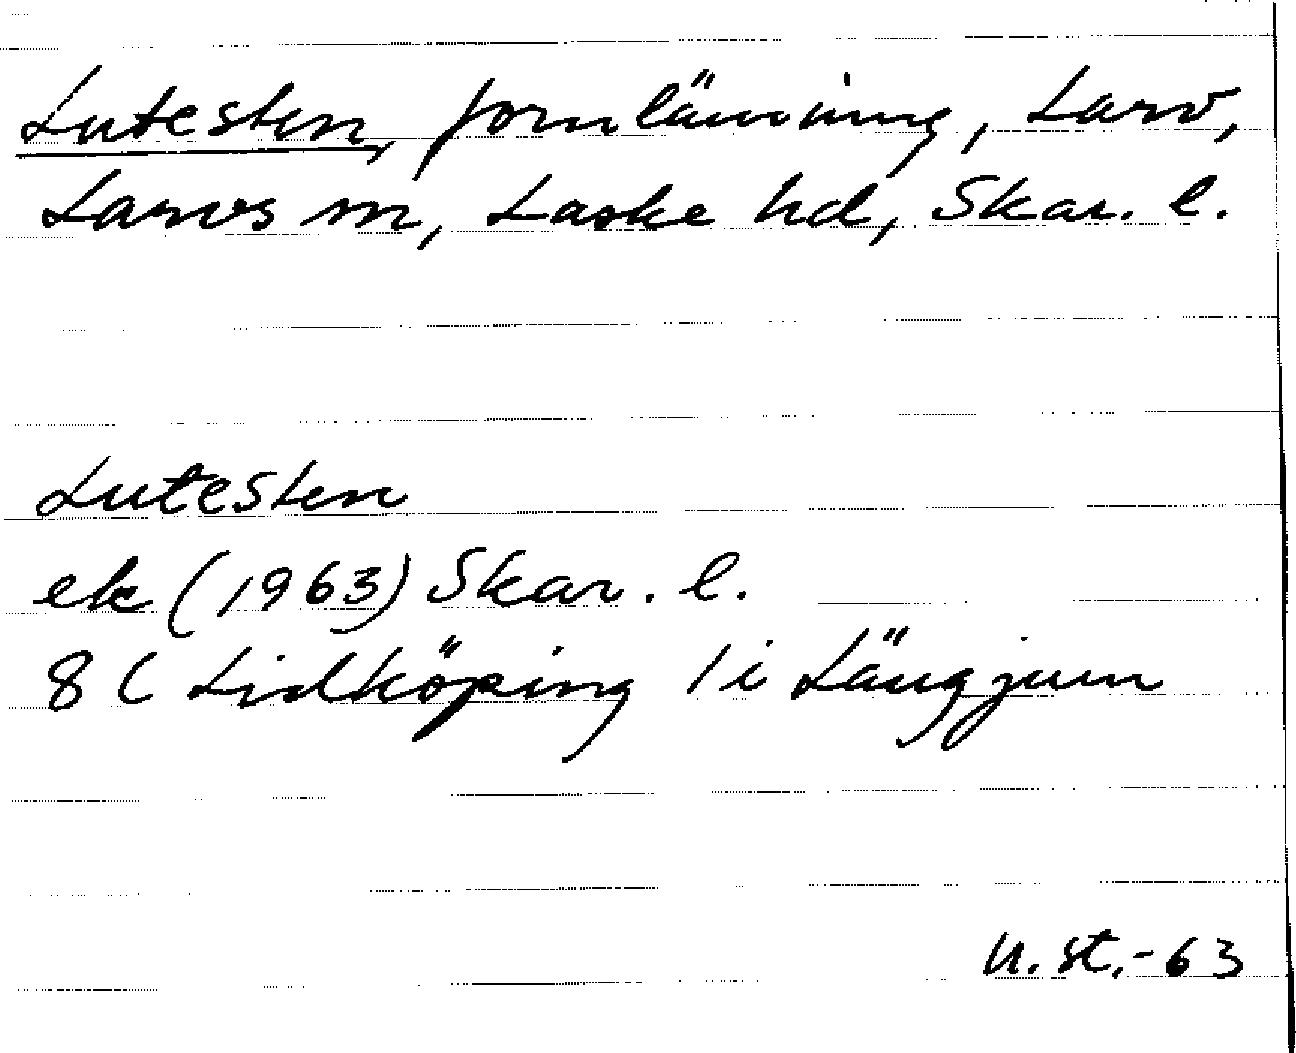 Lutesten, fornlämning, Larv,
Larvs sn, Laske hd, Skar. l.
Lutesten
ek (1963) Skar. l.
8 C Lidköping 1 i Längjum
U. st. -63